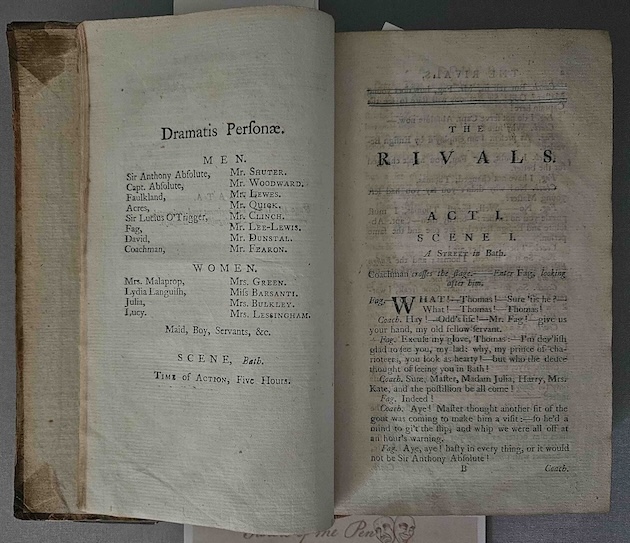 Dramatis Perſonæ.
MEN.
Sir Anthony Absolute, Mr. Shuter.
Capt. Absolute, Mr. Woodward.
Faulkland, Mr. Lewes.
Acres, Mr. Quick.
Sir Lucius O'Trigger, Mr. Clinch.
Fag, Mr. Lee-Lewis.
David, Mr. Dunstal.
Coachman, Mr. Fearon.
WOMEN.
Mrs. Malaprop, Mrs. Green.
Lydia Languiſh, Miſs Barsanti.
Julia, Mrs. Bulkley.
Lucy. Mrs. Lessingham.
Maid, Boy, Servants, &c.
SCENE, Bath.
Time of Action, Five Hours.
THE
RIVALS.
ACT I.
SCENE I.
A Street in Bath.
Coachman croſſes the ſtage.——Enter Fag, looking
after him.
Fag. WHAT!—Thomas!—Sure 'tis he?—
What!—Thomas!—Thomas!
Coach. Hey!—Odd's life!—Mr. Fag!—give us
your hand, my old fellow-ſervant.
Fag. Excuſe my glove, Thomas:—I'm dev'liſh
glad to ſee you, my lad: why, my prince of cha-
rioteers, you look as hearty!—but who the deuce
thought of ſeeing you in Bath!
Coach. Sure, Maſter, Madam Julia, Harry, Mrs.
Kate, and the poſtillion be all come!
Fag. Indeed!
Coach. Aye! Maſter thought another fit of the
gout was coming to make him a viſit:—ſo he'd a
mind to gi't the ſlip, and whip we were all off at
an hour's warning.
Fag. Aye, aye! haſty in every thing, or it would
not be Sir Anthony Abſolute!
B Coach.
of the Pen